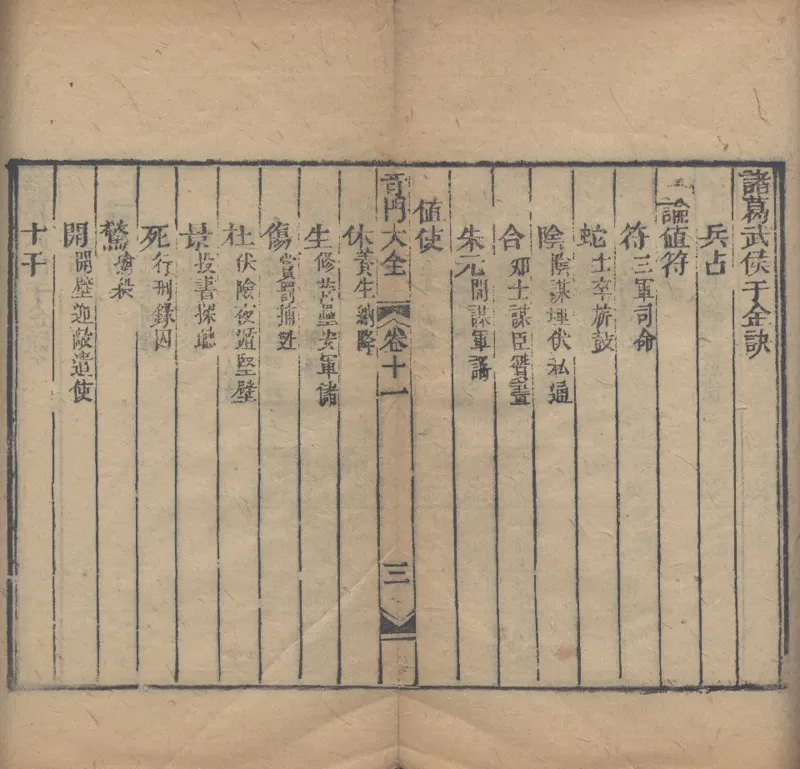 諸葛武侯千金訣
兵占
一論值符
符三軍司命
蛇士卒旂鼓
陰陰謀埋伏私逼
合卿士謀臣籌畫
朱元間諜軍
值使
奇門大全 卷十一 三
休養生納降
生修營壘安軍儲
傷賞罰捕
杜伏陰夜遁堅壁
景投書探聽
死行刑錄囚
驚擒殺
開開壁迎敵遣使
十干